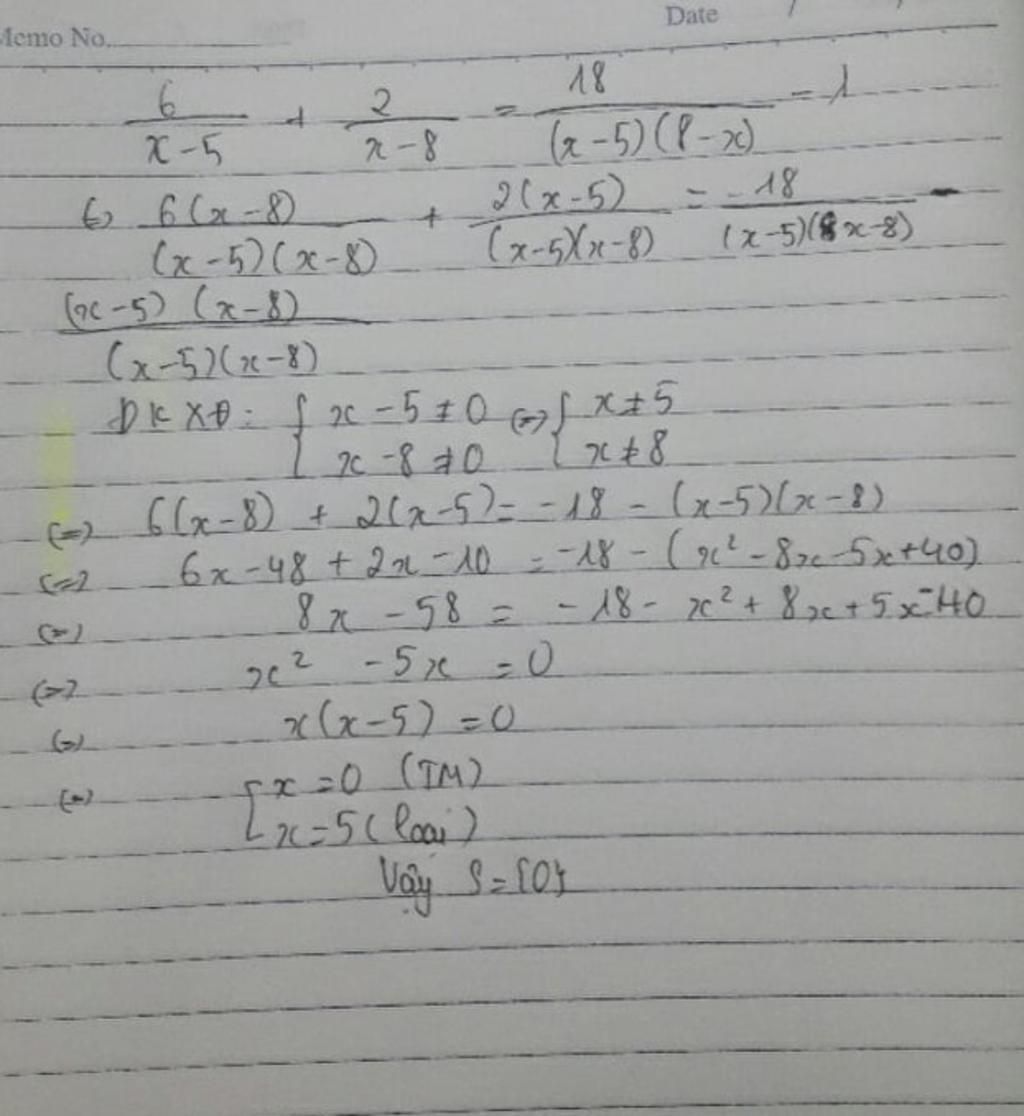 Memo No. Date / /
6/(x-5) + 2/(x-8) = 18/((x-5)(8-x)) - 1
(=) 6(x-8)/((x-5)(x-8)) + 2(x-5)/((x-5)(x-8)) = -18/((x-5)(x-8)) -
(x-5)(x-8)/((x-5)(x-8))
ĐKXĐ: { x-5≠0 (=) { x≠5
x-8≠0 x≠8
(=) 6(x-8) + 2(x-5) = -18 - (x-5)(x-8)
(=) 6x-48+2x-10 = -18-(x²-8x-5x+40)
(=) 8x-58 = -18-x²+8x+5x-40
(=) x² -5x = 0
(=) x(x-5) = 0
(=) [ x=0 (TM)
x=5 (loại)
Vậy S={0}